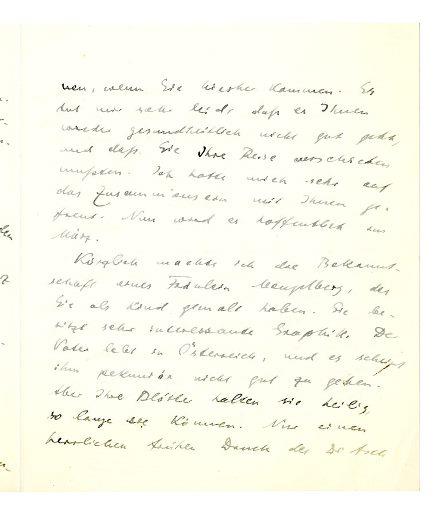 nen, wenn Sie hierher kommen. Es
tut mir sehr leid, daß es Ihnen
wieder gesundheitlich nicht gut geht,
und daß Sie Ihre Reise verschieben
mußten. Ich hatte mich sehr auf
das Zusammensein mit Ihnen ge-
freut. Nun wird es hoffentlich im
März.
Kürzlich machte ich die Bekannt-
schaft eines Fräulein, das
Sie als Kind gemalt haben. Sie be-
sitzt sehr interessante Graphik. Der
Vater lebt in Österreich, und es scheint
ihm pekuniär nicht gut zu gehen.
Aber Ihre Blätter halten sie heilig,
so lange sie können. Nur einen
herrlichen frühen Druck der